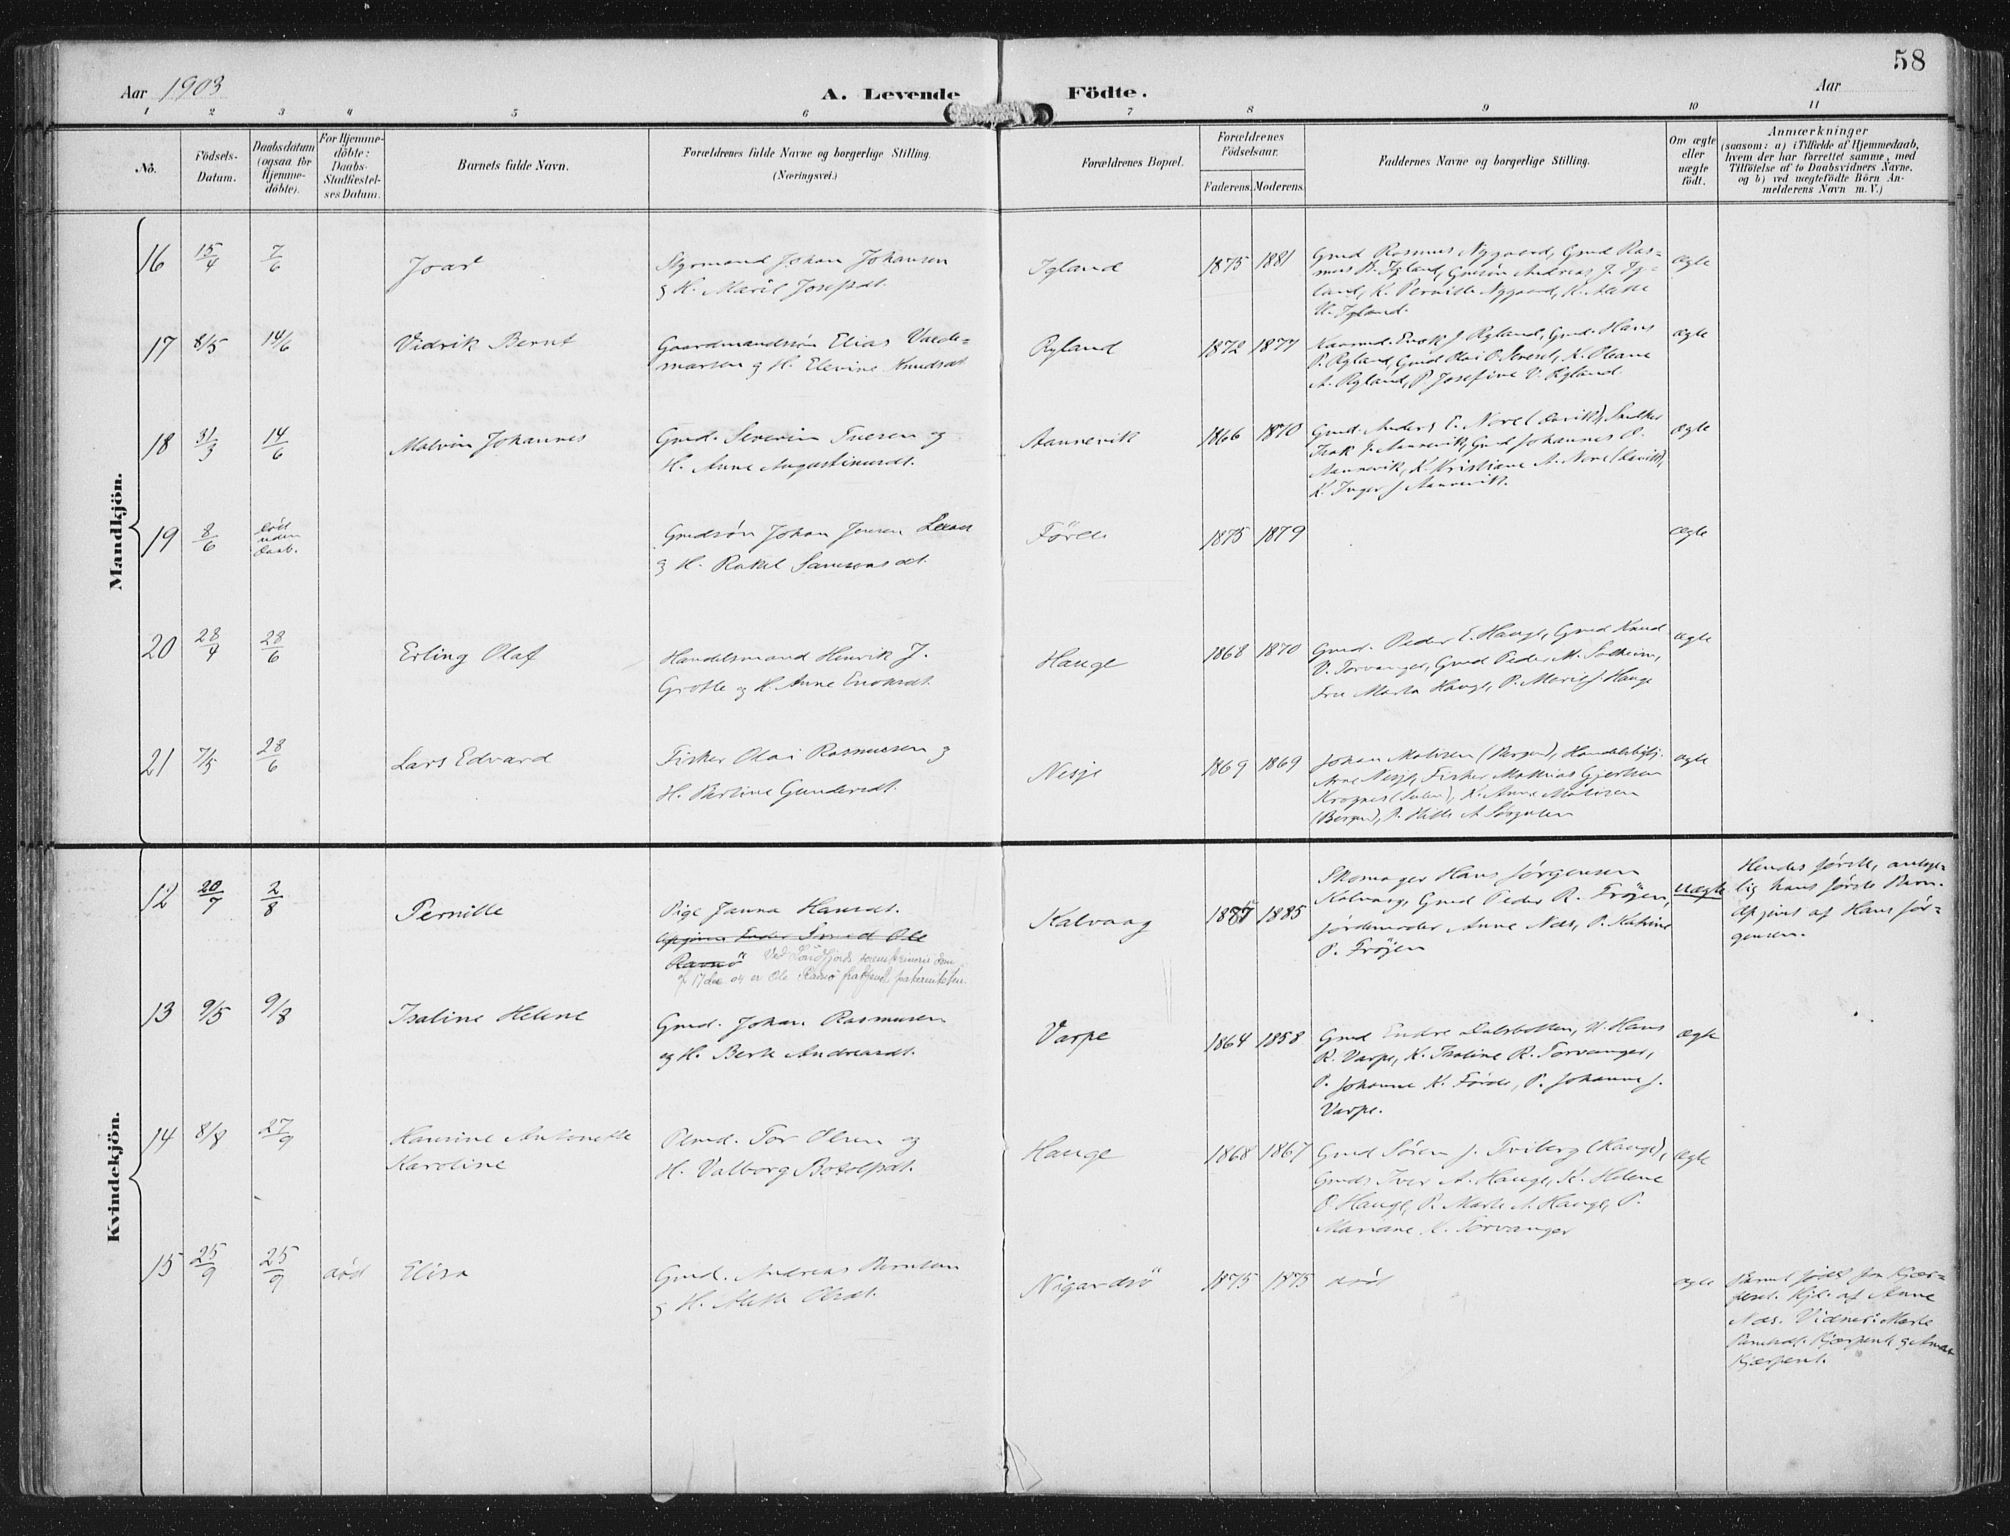 58
Aar 1903
A. Levende Födte.
Aar
1 2 3 4 5 6 7 8 9 10 11
No.
Födsels-
Datum.
Daabsdatum
(ogsaa for
Hjemme-
döbte).
For Hjemme-
döbte:
Daabs-
Stadfæstel-
ses Datum.
Barnets fulde Navn.
Forældrenes fulde Navne og borgerlige Stilling.
(Næringsvei.)
Forældrenes Bopæl.
Forældrenes
Födselsaar.
Faderens. Moderens.
Faddernes Navne og borgerlige Stilling.
Om ægte
eller
uægte
födt.
Anmærkninger
(saasom: a) i Tilfælde af Hjemmedaab,
hvem der har forrettet samme, med
Tilföielse af to Daabsvidners Navne,
og b) ved uægtefödte Börn An-
melderens Navn m. V.)
Mandkjön.
16 15/4 7/6 Joar
Styrmand Johan Johansen
og H. Marit Josefsdt.
Igland 1875 1881
Gmd Rasmus Nygaard, Gmd Ras-
mus Igland, Andreas J. Ig-
land, K. Pernille Nygaard,
Igland.
ægte
17 8/5 14/6 Vidrik Bernt
Gaardmandssøn Elias Valde-
marsen og H. Elevine Knudsdt.
Ryland 1872 1877
J. Ryland, Gmd. Hans
P. Ryland, Gmd Olai O. K. Oleane
A. Ryland, P. Josefine V. Ryland.
ægte
18 31/3 14/6 Malvin Johannes
Gmd. Severin Iversen og
H. Anne Augustinusdt.
Aannevik 1866 1870
Gmd. Anders E. Nore (Davik),
Isak J. Aannevik, Gmd Johannes O.
Aannevik, K. Kristiane A. Nore (Davik),
K. Inger J. Aannevik.
ægte
19 8/6 død
uden
Daab.
Gmdsøn Johan Jensen
og H. Rakel Samsonsdt.
Förde 1875 1879 ægte
20 28/4 28/6 Erling Olaf
Handelsmand Henrik J.
Grotle og H. Anne Enoksdt.
Hauge 1868 1870
Gmd. Peder E. Hauge, Gmd Knud
V. Torvanger, Gmd Peder M. Solheim,
Fru Marta Hauge, P. Marie J. Hauge
ægte
21 7/5 28/6 Lars Edvard
Fisker Olai Rasmussen og
H. Perline Gundersdt.
Nesje 1869 1869
Johan Madsen (Bergen), Handelsbetj.
Arne Nesje, Fisker Mathias Gjertsen
Krognes (Sulen), K. Anne Madsen
(Bergen), P. A.
ægte
Kvindekjön.
12 20/7 2/8 Pernille
Pige Janna Hansdt.
Opgiven Fader Smed Ole
Ravnø Ved Søndfjords sorenskriveris dom
af 17 dec 04 er Ole Ravnø frakjendt paterniteten.
Kalvaag 1885
Skomager Hans Jørgensen
Kalvaag, Gmd Peder R. Frøjen,
Jordemoder Anne Nes, P. Katrine
P. Frøjen
uægte
Hendes første, antage-
lig hans første Barn.
Opgivet af Hans Jør-
gensen.
13 9/5 9/8 Isaline Helene
Gmd. Johan Rasmusen
og H. Berte Andreasdt.
Varpe 1864 1858
Gmd Endre Dalsbotten, U. Hans
R. Varpe, K. Isaline R. Torvanger,
P. Johanne K. Førde, P. Johanne J.
Varpe.
ægte
14 8/8 27/9 Hansine Antonette
Karoline
Plmd. Tor Olsen og
H. Valborg Botolfsdt.
Hauge 1868 1867
Gmd Søren J. Tviberg (Hauge),
Gmds. Iver A. Hauge, K. Helene
O Hauge, P. Marte A. Hauge, P.
Mariane K. Torvanger
ægte
15 25/9 25/9 død Elisa
Gmd. Andreas Berntsen
og H. Alette Olsdt.
Nigardsö 1875 1875 død ægte
Barnet født
Hjd. af Anne
Nes. Vidner: Marte